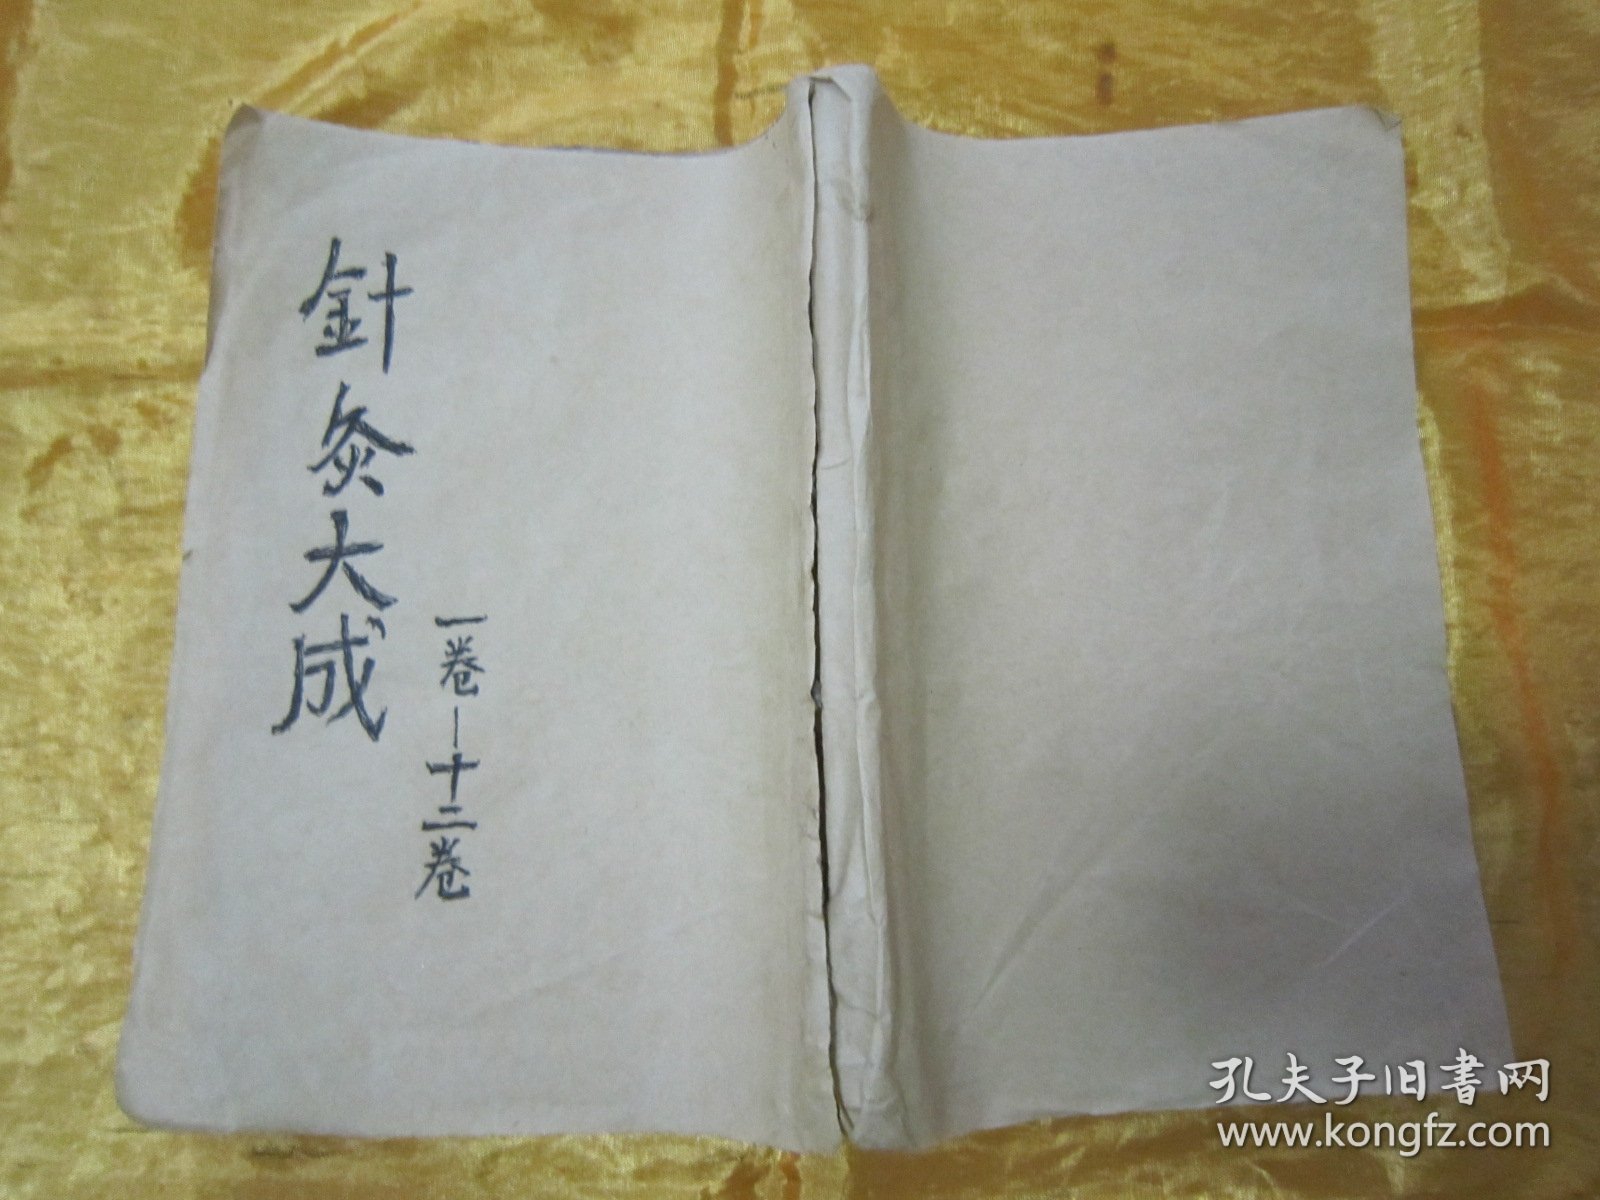 針灸大成
一卷—十二卷
孔夫子旧书网
www.kongfz.com